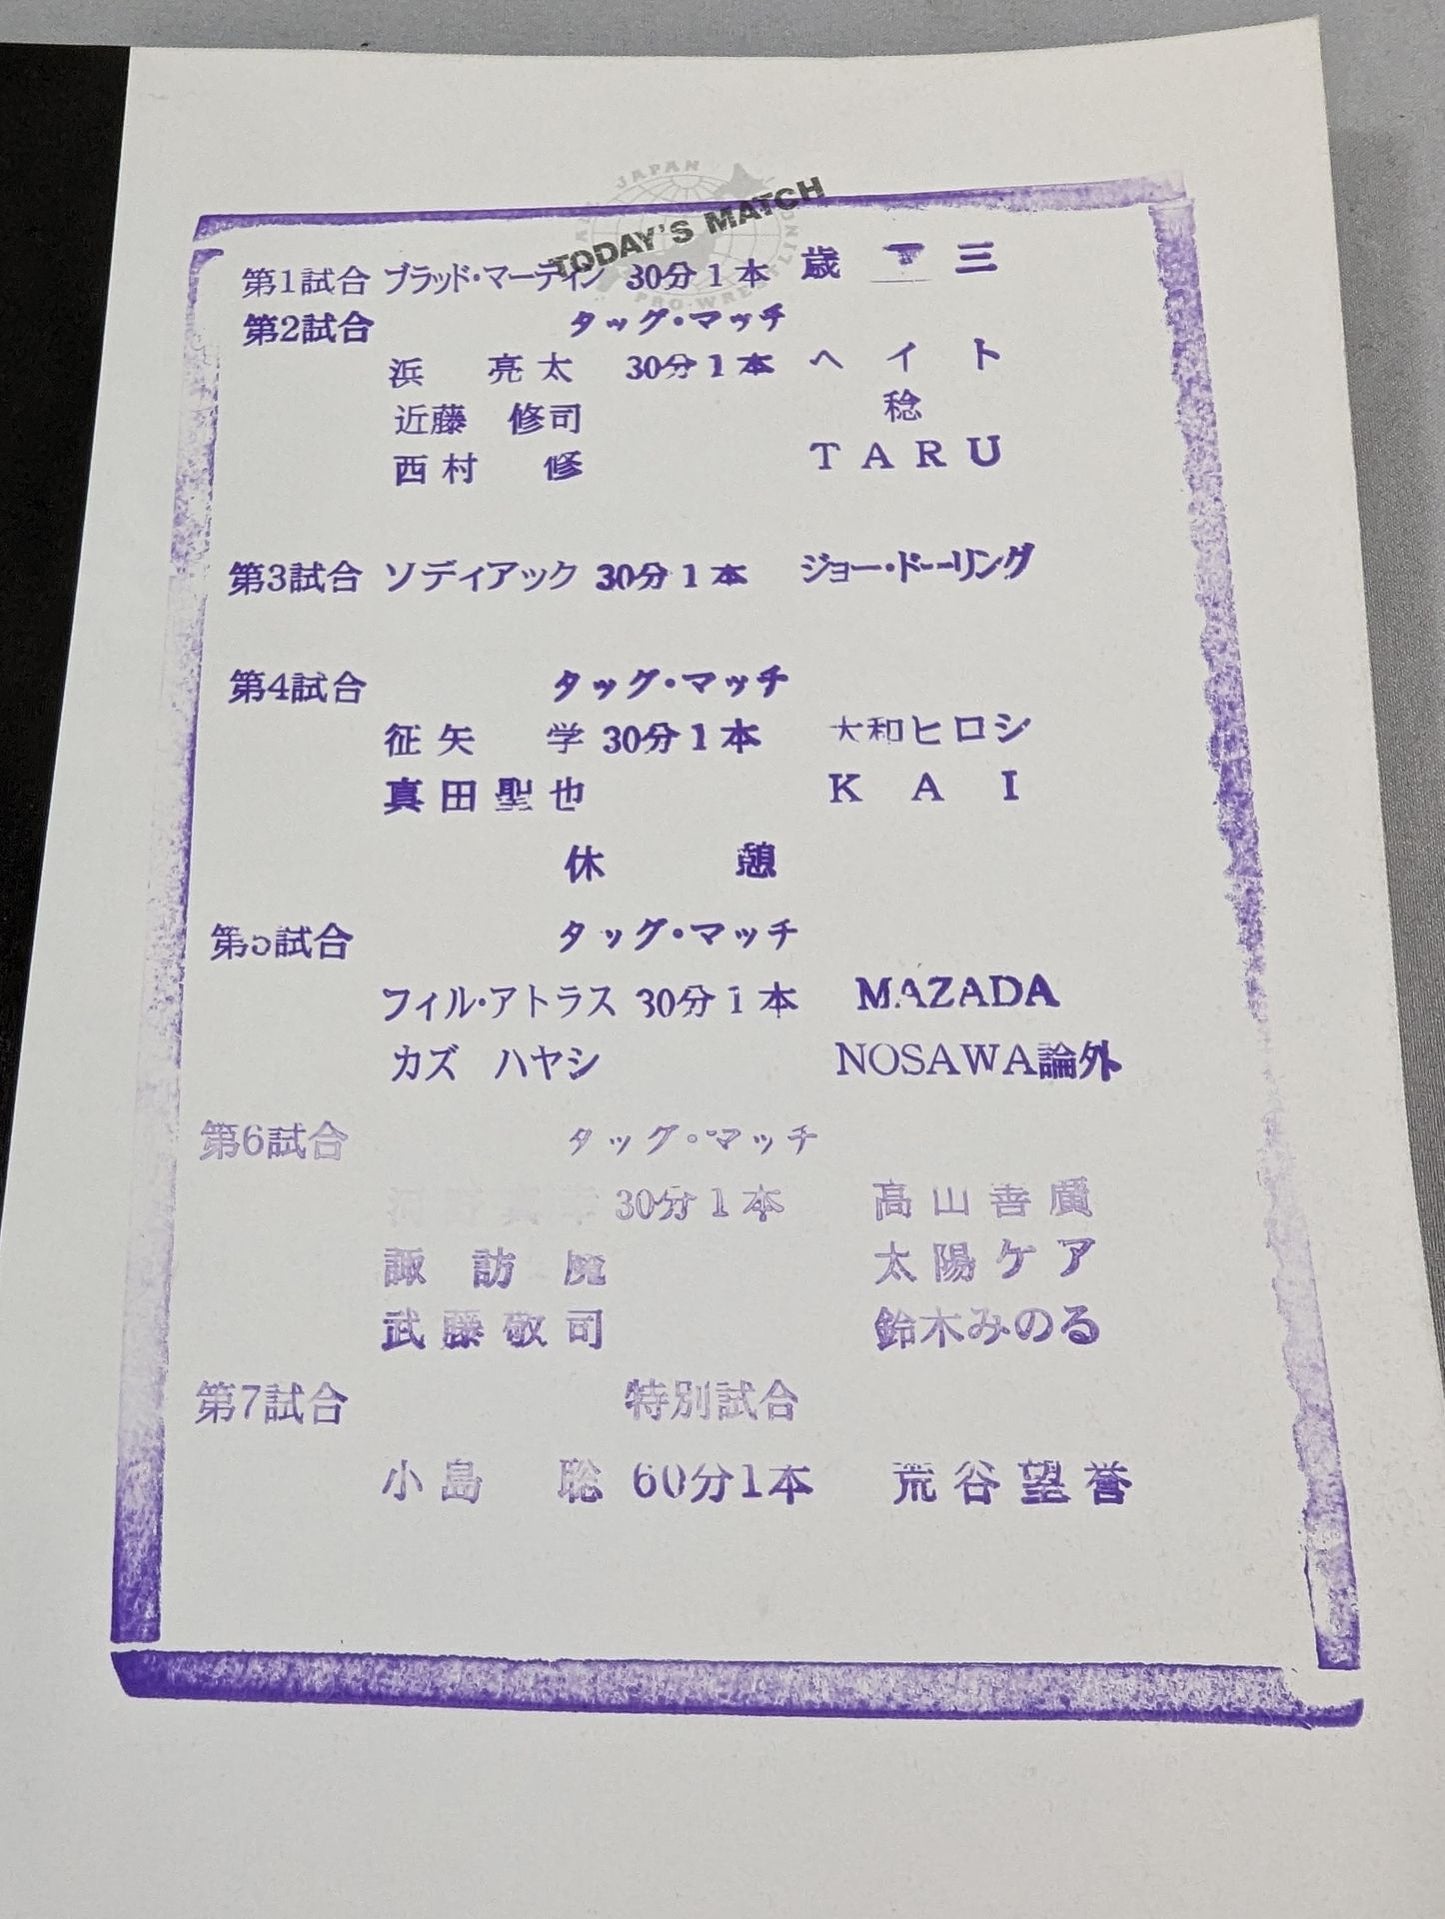 JAPAN
TODAY'S MATCH
第1試合 ブラッド・マーティン 30分1本 歳 三
第2試合 タッグ・マッチ
浜 亮太 30分1本 ヘイト
近藤 修司 稔
西村 修 TARU
第3試合 ソディアック 30分1本 ジョー・ドーリング
第4試合 タッグ・マッチ
征矢 学 30分1本 大和ヒロシ
真田聖也 KAI
休 憩
第5試合 タッグ・マッチ
フィル・アトラス 30分1本 MAZADA
カズ ハヤシ NOSAWA論外
第6試合 タッグ・マッチ
30分1本 高山善廣
諏訪魔 太陽ケア
武藤敬司 鈴木みのる
第7試合 特別試合
小島 聡 60分1本 荒谷望誉